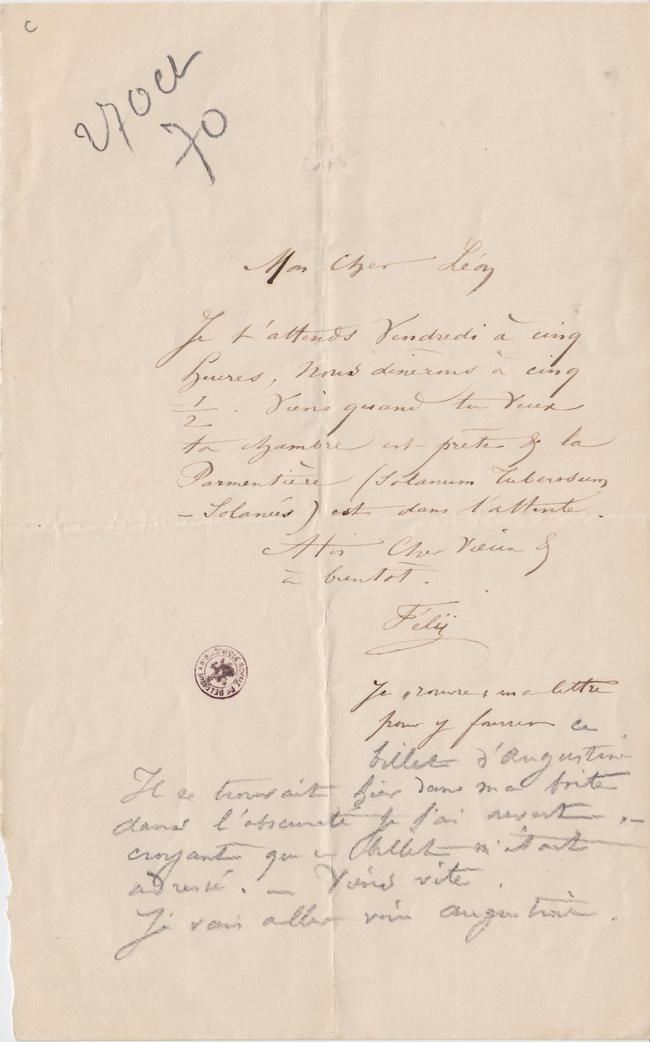 C
27 oct
70
Mon Cher Léon
Je t'attends Vendredi à cinq
heures, Nous dinerons à cinq
1/2. Viens quand tu Veux
ta chambre est prête & la
Parmentière (Solanum Tuberosum
– Solanées) est dans l'attente.
A toi Cher Vieux &
à bientôt.
Félix
Je "rouvre" ma lettre
pour y fourrer ce
billet d'Augustine
Il se trouvait hier dans ma boite
dans l'obscurité je l'ai ouvert, –
croyant que ce billet m'était
adressé. – Viens vite.
Je vais aller voir augustine.